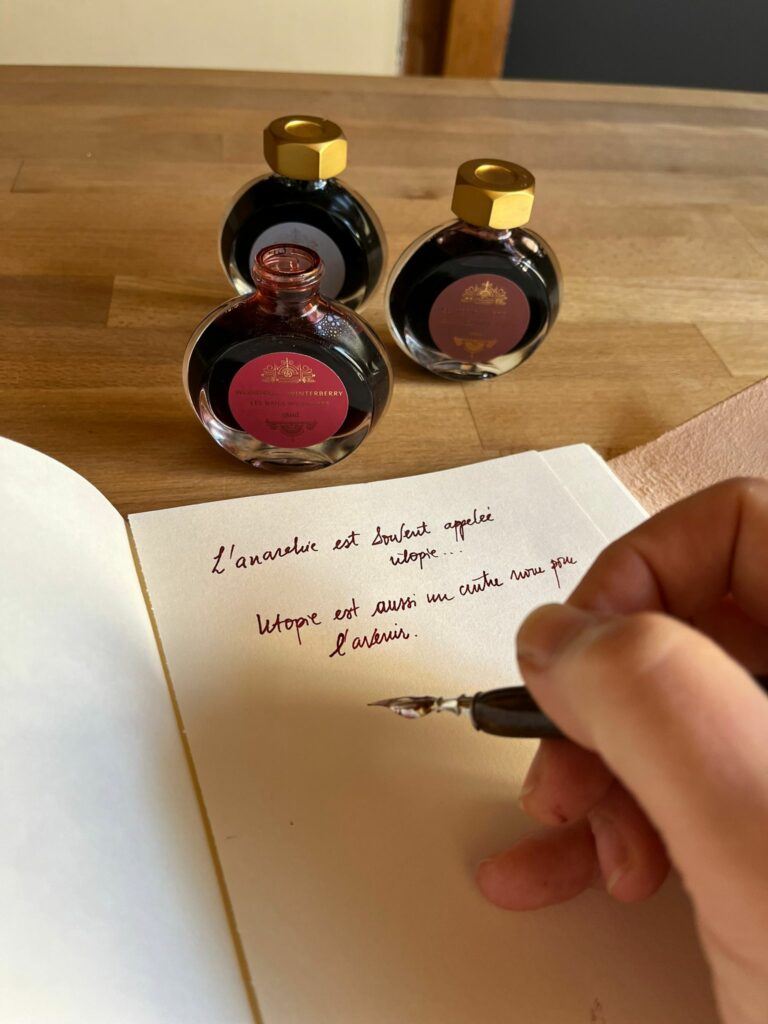 WINTERBERRY
L'anarchie est souvent appelée
utopie...
Utopie est aussi un autre nom pour
l'avenir.